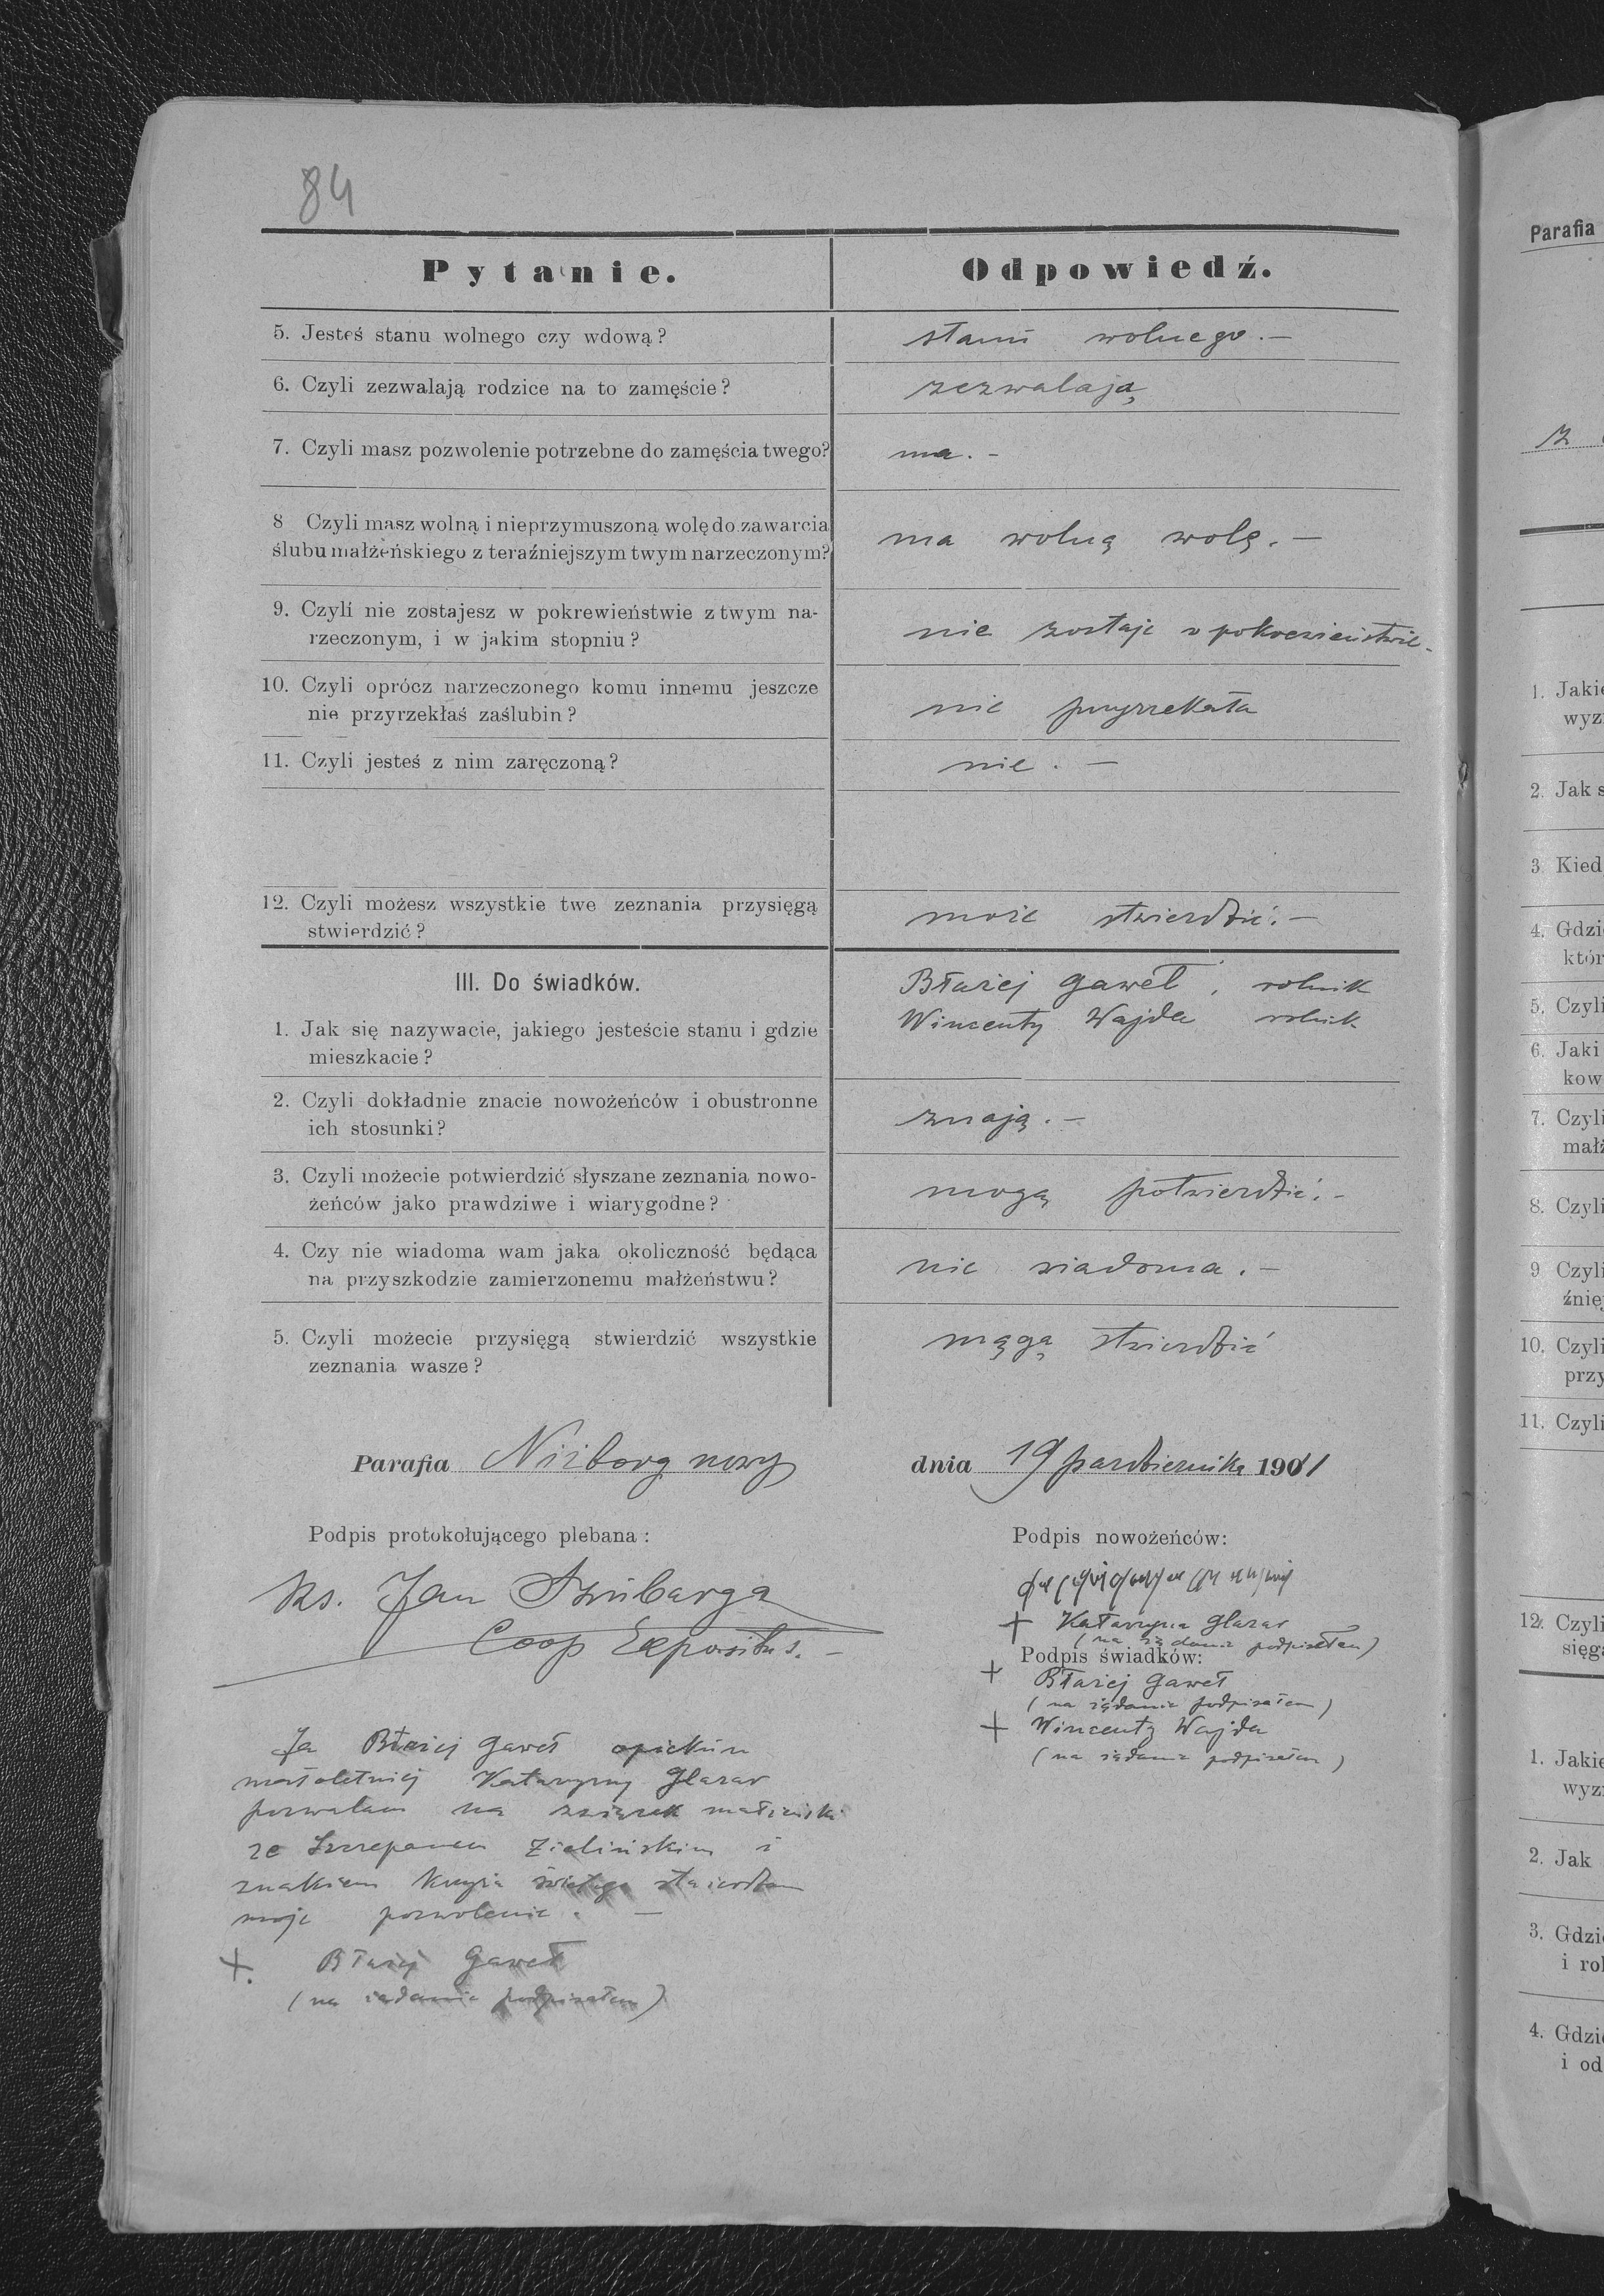 84
Pytanie. Odpowiedź.
5. Jesteś stanu wolnego czy wdową? stanu wolnego. —
6. Czyli zezwalają rodzice na to zamęście? zezwalają
7. Czyli masz pozwolenie potrzebne do zamęścia twego? ma. -
8 Czyli masz wolną i nieprzymuszoną wolę do zawarcia
ślubu małżeńskiego z teraźniejszym twym narzeczonym? ma wolną wolę. —
9. Czyli nie zostajesz w pokrewieństwie z twym na-
rzeczonym, i w jakim stopniu? nie zostaje w pokrewieństwie. -
10. Czyli oprócz narzeczonego komu innemu jeszcze
nie przyrzekłaś zaślubin? nie przyrzekała
11. Czyli jesteś z nim zaręczoną? nie. —
12. Czyli możesz wszystkie twe zeznania przysięgą
stwierdzić? może stwierdzić. —
III. Do świadków. Błażej Gaweł, rolnik
1. Jak się nazywacie, jakiego jesteście stanu i gdzie Wincenty Wajda rolnik
mieszkacie?
2. Czyli dokładnie znacie nowożeńców i obustronne
ich stosunki? znają. —
3. Czyli możecie potwierdzić słyszane zeznania nowo-
żeńców jako prawdziwe i wiarygodne? mogą potwierdzić. -
4. Czy nie wiadoma wam jaka okoliczność będąca
na przyszkodzie zamierzonemu małżeństwu? nie wiadoma. —
5. Czyli możecie przysięgą stwierdzić wszystkie
zeznania wasze? mągą stwierdzić
Parafia Niżborg nowy dnia 19 października 1901
Podpis protokołującego plebana: Podpis nowożeńców:
Ks. Jan
Coop Expositus. —
+ Katarzyna Glazar
(na żądanie podpisałem)
Podpis świadków:
+ Błażej Gaweł
(na żądanie podpisałem)
+ Wincenty Wajda
(na żądanie podpisałem)
Ja Błażej Gaweł opiekun
małoletniej Katarzyny Glazar
pozwalam na związek małżeński
ze Szczepanem Zielińskim i
znakiem krzyża świętego stwierdzam
moje pozwolenie. —
+. Błażej Gaweł
(na żądanie podpisałem)
Parafia
z
1. Jakie
wyz
2. Jak s
3. Kied
4. Gdzi
któr
5. Czyli
6. Jaki
kow
7. Czyli
małż
8. Czyli
9 Czyli
źnię
10. Czyli
przy
11. Czyli
12. Czyli
sięg
1. Jakie
wyz
2. Jak
3. Gdzi
i rol
4. Gdzi
i od